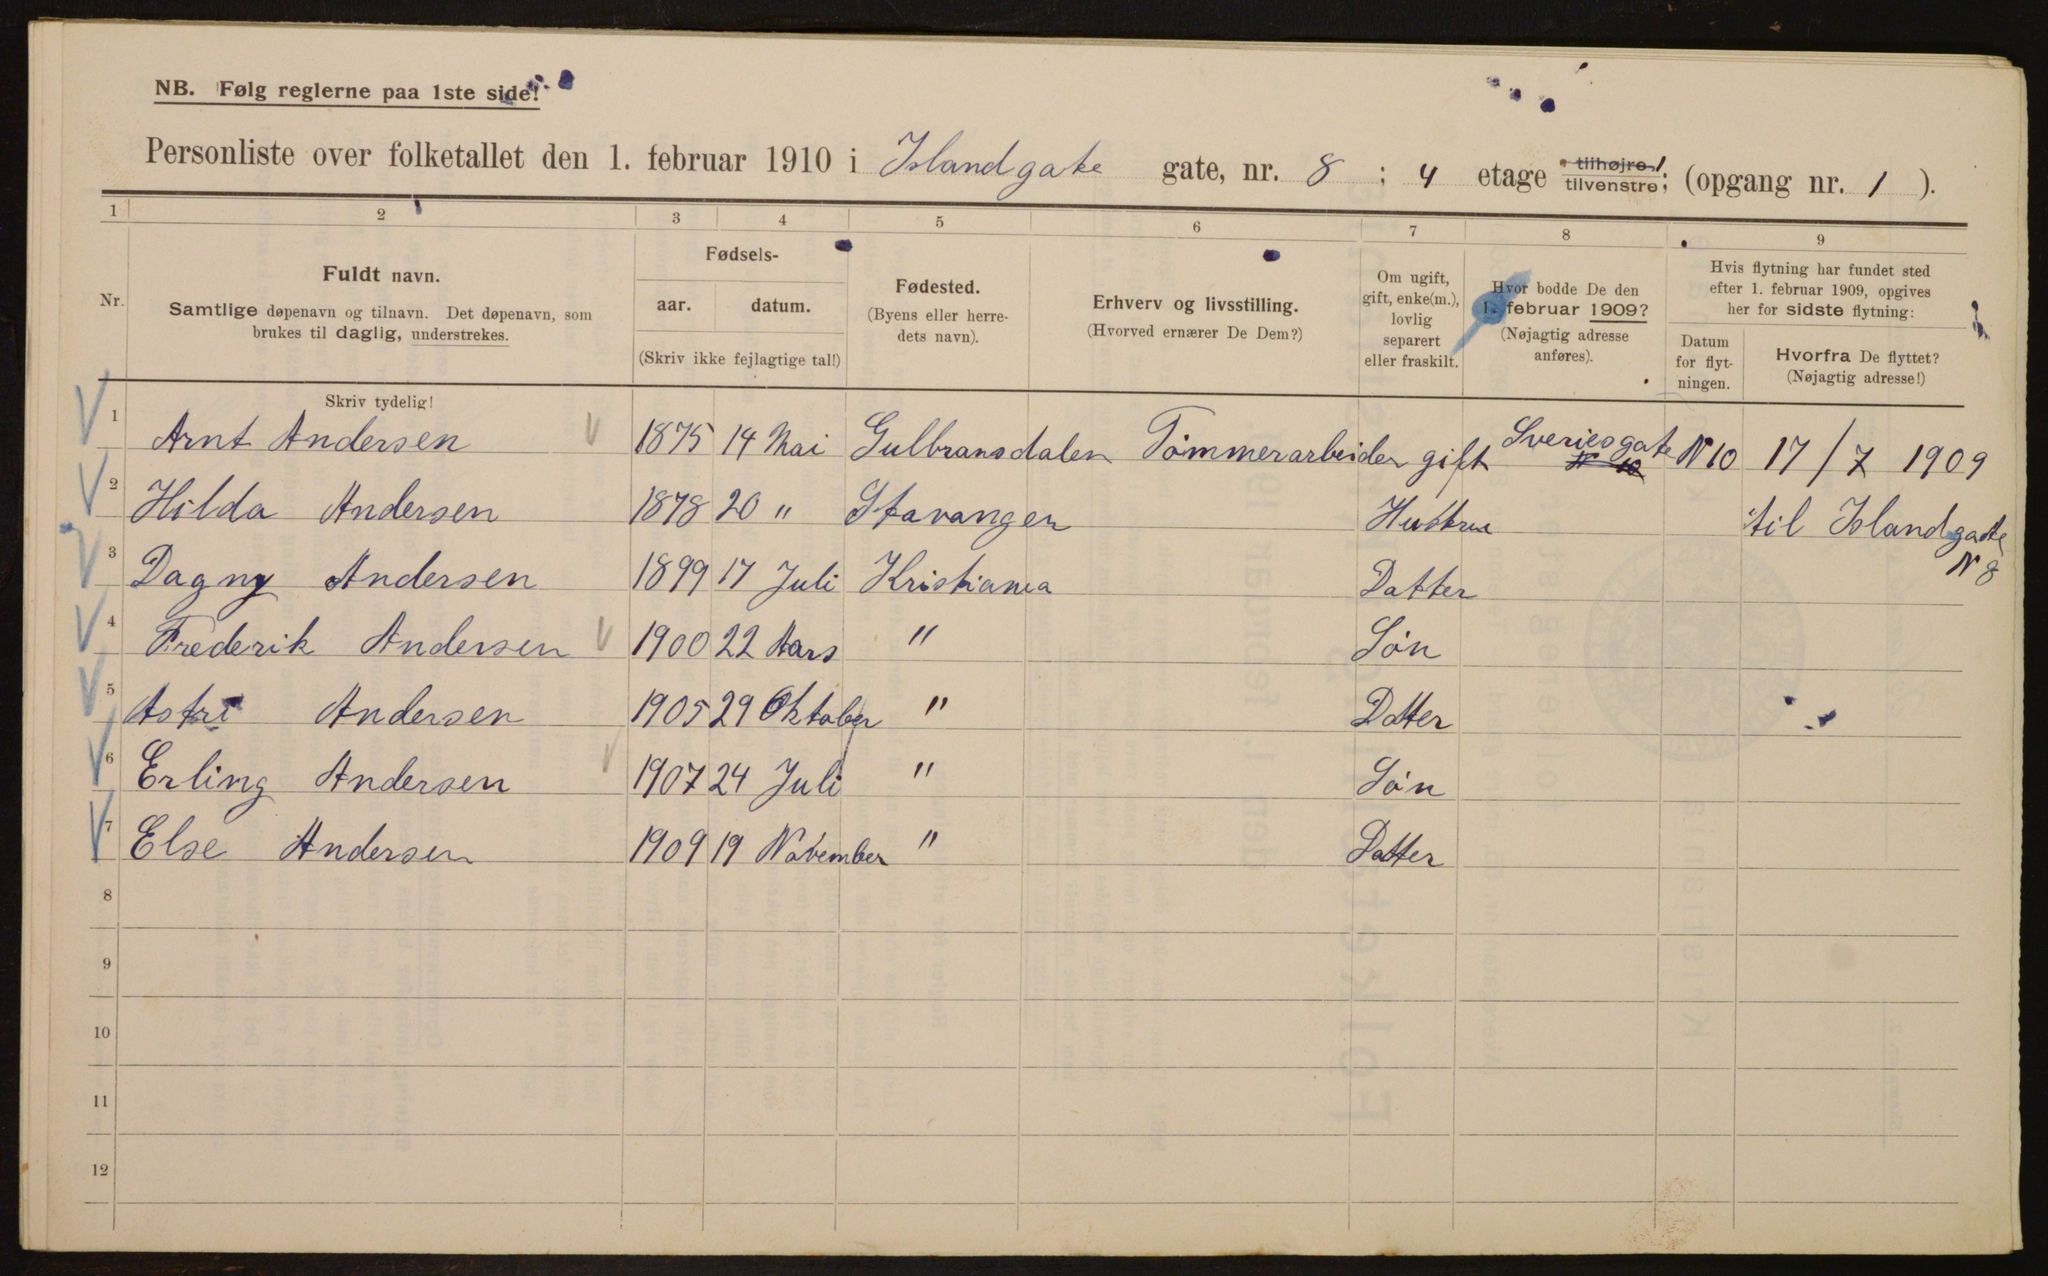 NB. Følg reglerne paa 1ste side!
Personliste over folketallet den 1. februar 1910 i Islandgate gate, nr. 8 ; 4 etage tilhøjre/tilvenstre; (opgang nr. 1 ).
1 2 3 4 5 6 7 8 9
Nr.
Fuldt navn.
Samtlige døpenavn og tilnavn. Det døpenavn, som
brukes til daglig, understrekes.
Skriv tydelig!
Fødsels-
aar. datum.
(Skriv ikke fejlagtige tal!)
Fødested.
(Byens eller herre-
dets navn).
Erhverv og livsstilling.
(Hvorved ernærer De Dem?)
Om ugift,
gift, enke(m.),
lovlig
separert
eller fraskilt.
Hvor bodde De den
1. februar 1909?
(Nøjagtig adresse
anføres).
Hvis flytning har fundet sted
efter 1. februar 1909, opgives
her for sidste flytning:
Datum
for flyt-
ningen.
Hvorfra De flyttet?
(Nøjagtig adresse!)
1 Arnt Andersen 1875 14 Mai Gulbransdalen Tømmerarbeider gift Sveriesgate N 10 17/7 1909
2 Hilda Andersen 1878 20 " Stavanger Hustru til Islandgate
N 8
3 Dagny Andersen 1899 17 Juli Kristiania Datter
4 Frederik Andersen 1900 22 Mars " Søn
5 Astri Andersen 1905 29 Oktober " Datter
6 Erling Andersen 1907 24 Juli " Søn
7 Else Andersen 1909 19 November " Datter
8
9
10
11
12